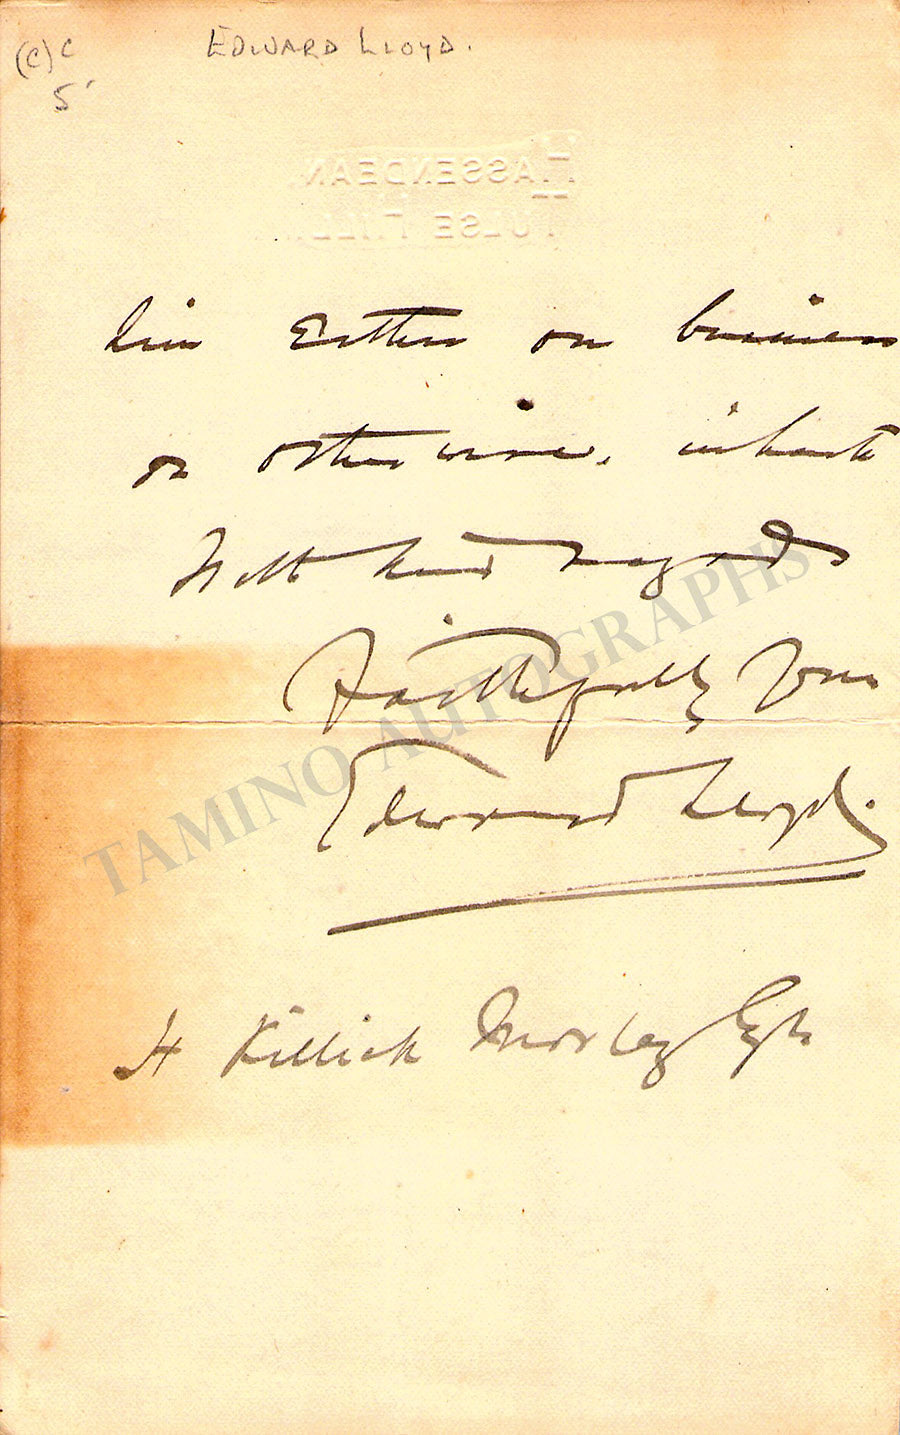 (c) c
EDWARD LLOYD.
5
HASSENDEAN
TULSE HILL
him Either on business
or otherwise.
With kind regards
Faithfully Yours
Edward Lloyd.
H Killick Morley Esq
TAMINO AUTOGRAPHS